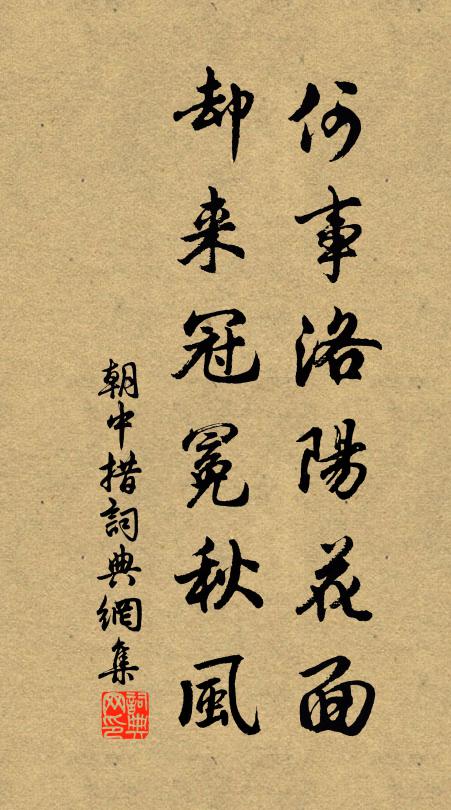 何事洛陽花面
却来冠冕秋風
朝中措詞典網集
詞典网印